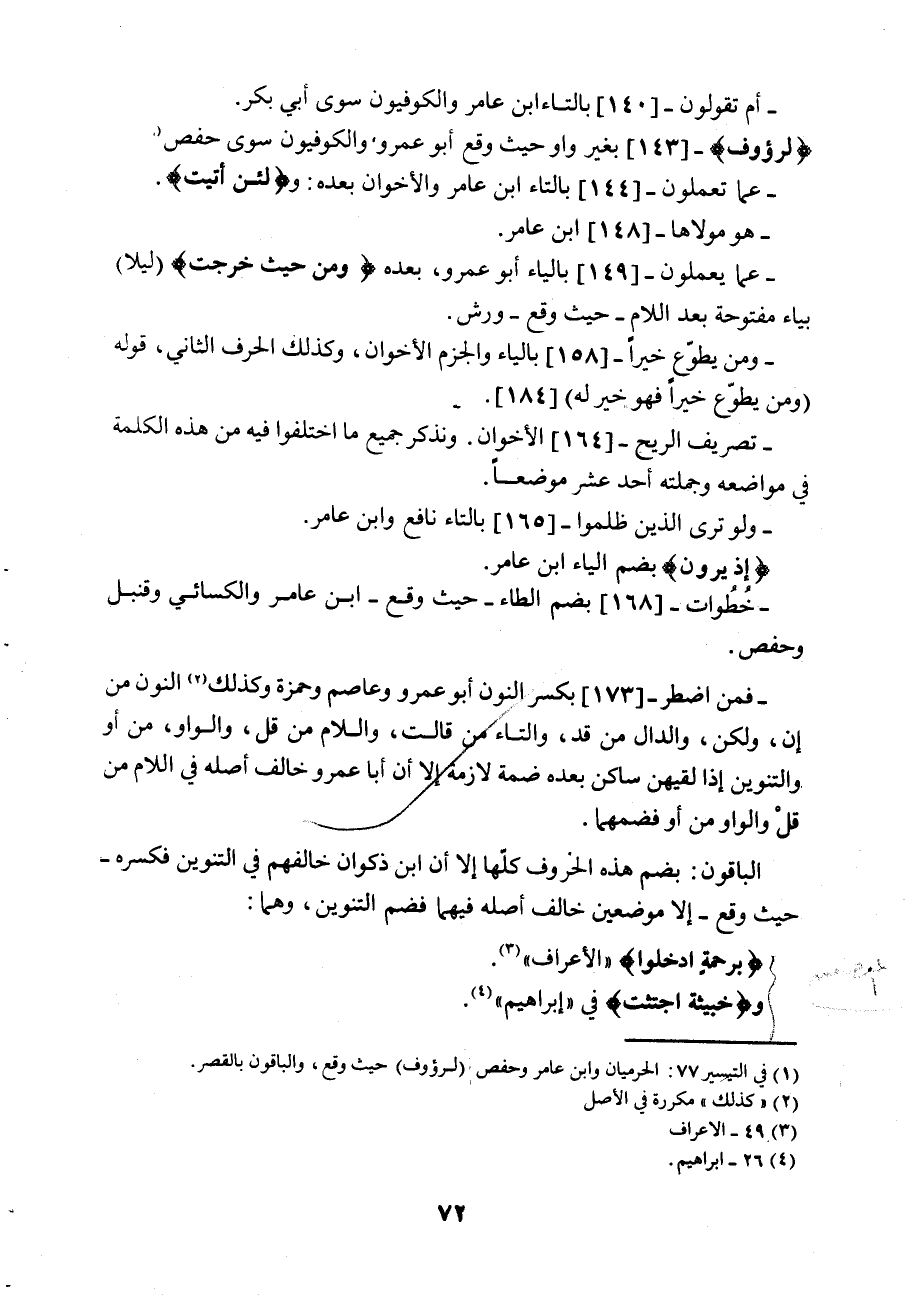 ـ أم تقولون ـ [١٤٠] بالتاء ابن عامر والكوفيون سوى أبي بكر.
﴿لرؤوف﴾ ـ [١٤٣] بغير واو حيث وقع أبو عمرو، والكوفيون سوى حفص(١)
ـ عما تعملون ـ [١٤٤] بالتاء ابن عامر والأخوان بعده: و﴿لئن أتيت﴾.
ـ هو مولاها ـ [١٤٨] ابن عامر.
ـ عما يعملون ـ [١٤٩] بالياء أبو عمرو، بعده ﴿ومن حيث خرجت﴾ (ليلا)
بياء مفتوحة بعد اللام ـ حيث وقع ـ ورش.
ـ ومن يطوّع خيراً ـ [١٥٨] بالياء والجزم الأخوان، وكذلك الحرف الثاني، قوله
(ومن يطوّع خيراً فهو خير له) [١٨٤].
ـ تصريف الريح ـ [١٦٤] الأخوان. ونذكر جميع ما اختلفوا فيه من هذه الكلمة
في مواضعه وجملته أحد عشر موضعـاً.
ـ ولو ترى الذين ظلموا ـ [١٦٥] بالتاء نافع وابن عامر.
﴿إذ يرون﴾ بضم الياء ابن عامر.
ـ خُطُوات ـ [١٦٨] بضم الطاء ـ حيث وقع ـ ابن عامر والكسائي وقنبل
وحفص.
ـ فمن اضطر ـ [١٧٣] بكسر النون أبو عمرو وعاصم وحمزة وكذلك(٢) النون من
إن، ولكن، والدال من قد، والتاء من قالت، واللام من قل، والواو، من أو
والتنوين إذا لقيهن ساكن بعده ضمة لازمة إلا أن أبا عمرو خالف أصله في اللام من
قلْ والواو من أو فضمهما.
الباقون: بضم هذه الحروف كلّها إلا أن ابن ذكوان خالفهم في التنوين فكسره ـ
حيث وقع ـ إلا موضعين خالف أصله فيهما فضم التنوين، وهما:
﴿برحمةٍ ادخلوا﴾ «الأعراف»(٣).
و﴿خبيثة اجتثت﴾ في «إبراهيم»(٤).
(١) في التيسير ٧٧: الحرميان وابن عامر وحفص (لرؤوف) حيث وقع، والباقون بالقصر.
(٢) «كذلك» مكررة في الأصل
(٣) ٤٩ ـ الاعراف
(٤) ٢٦ ـ ابراهيم.
٧٢